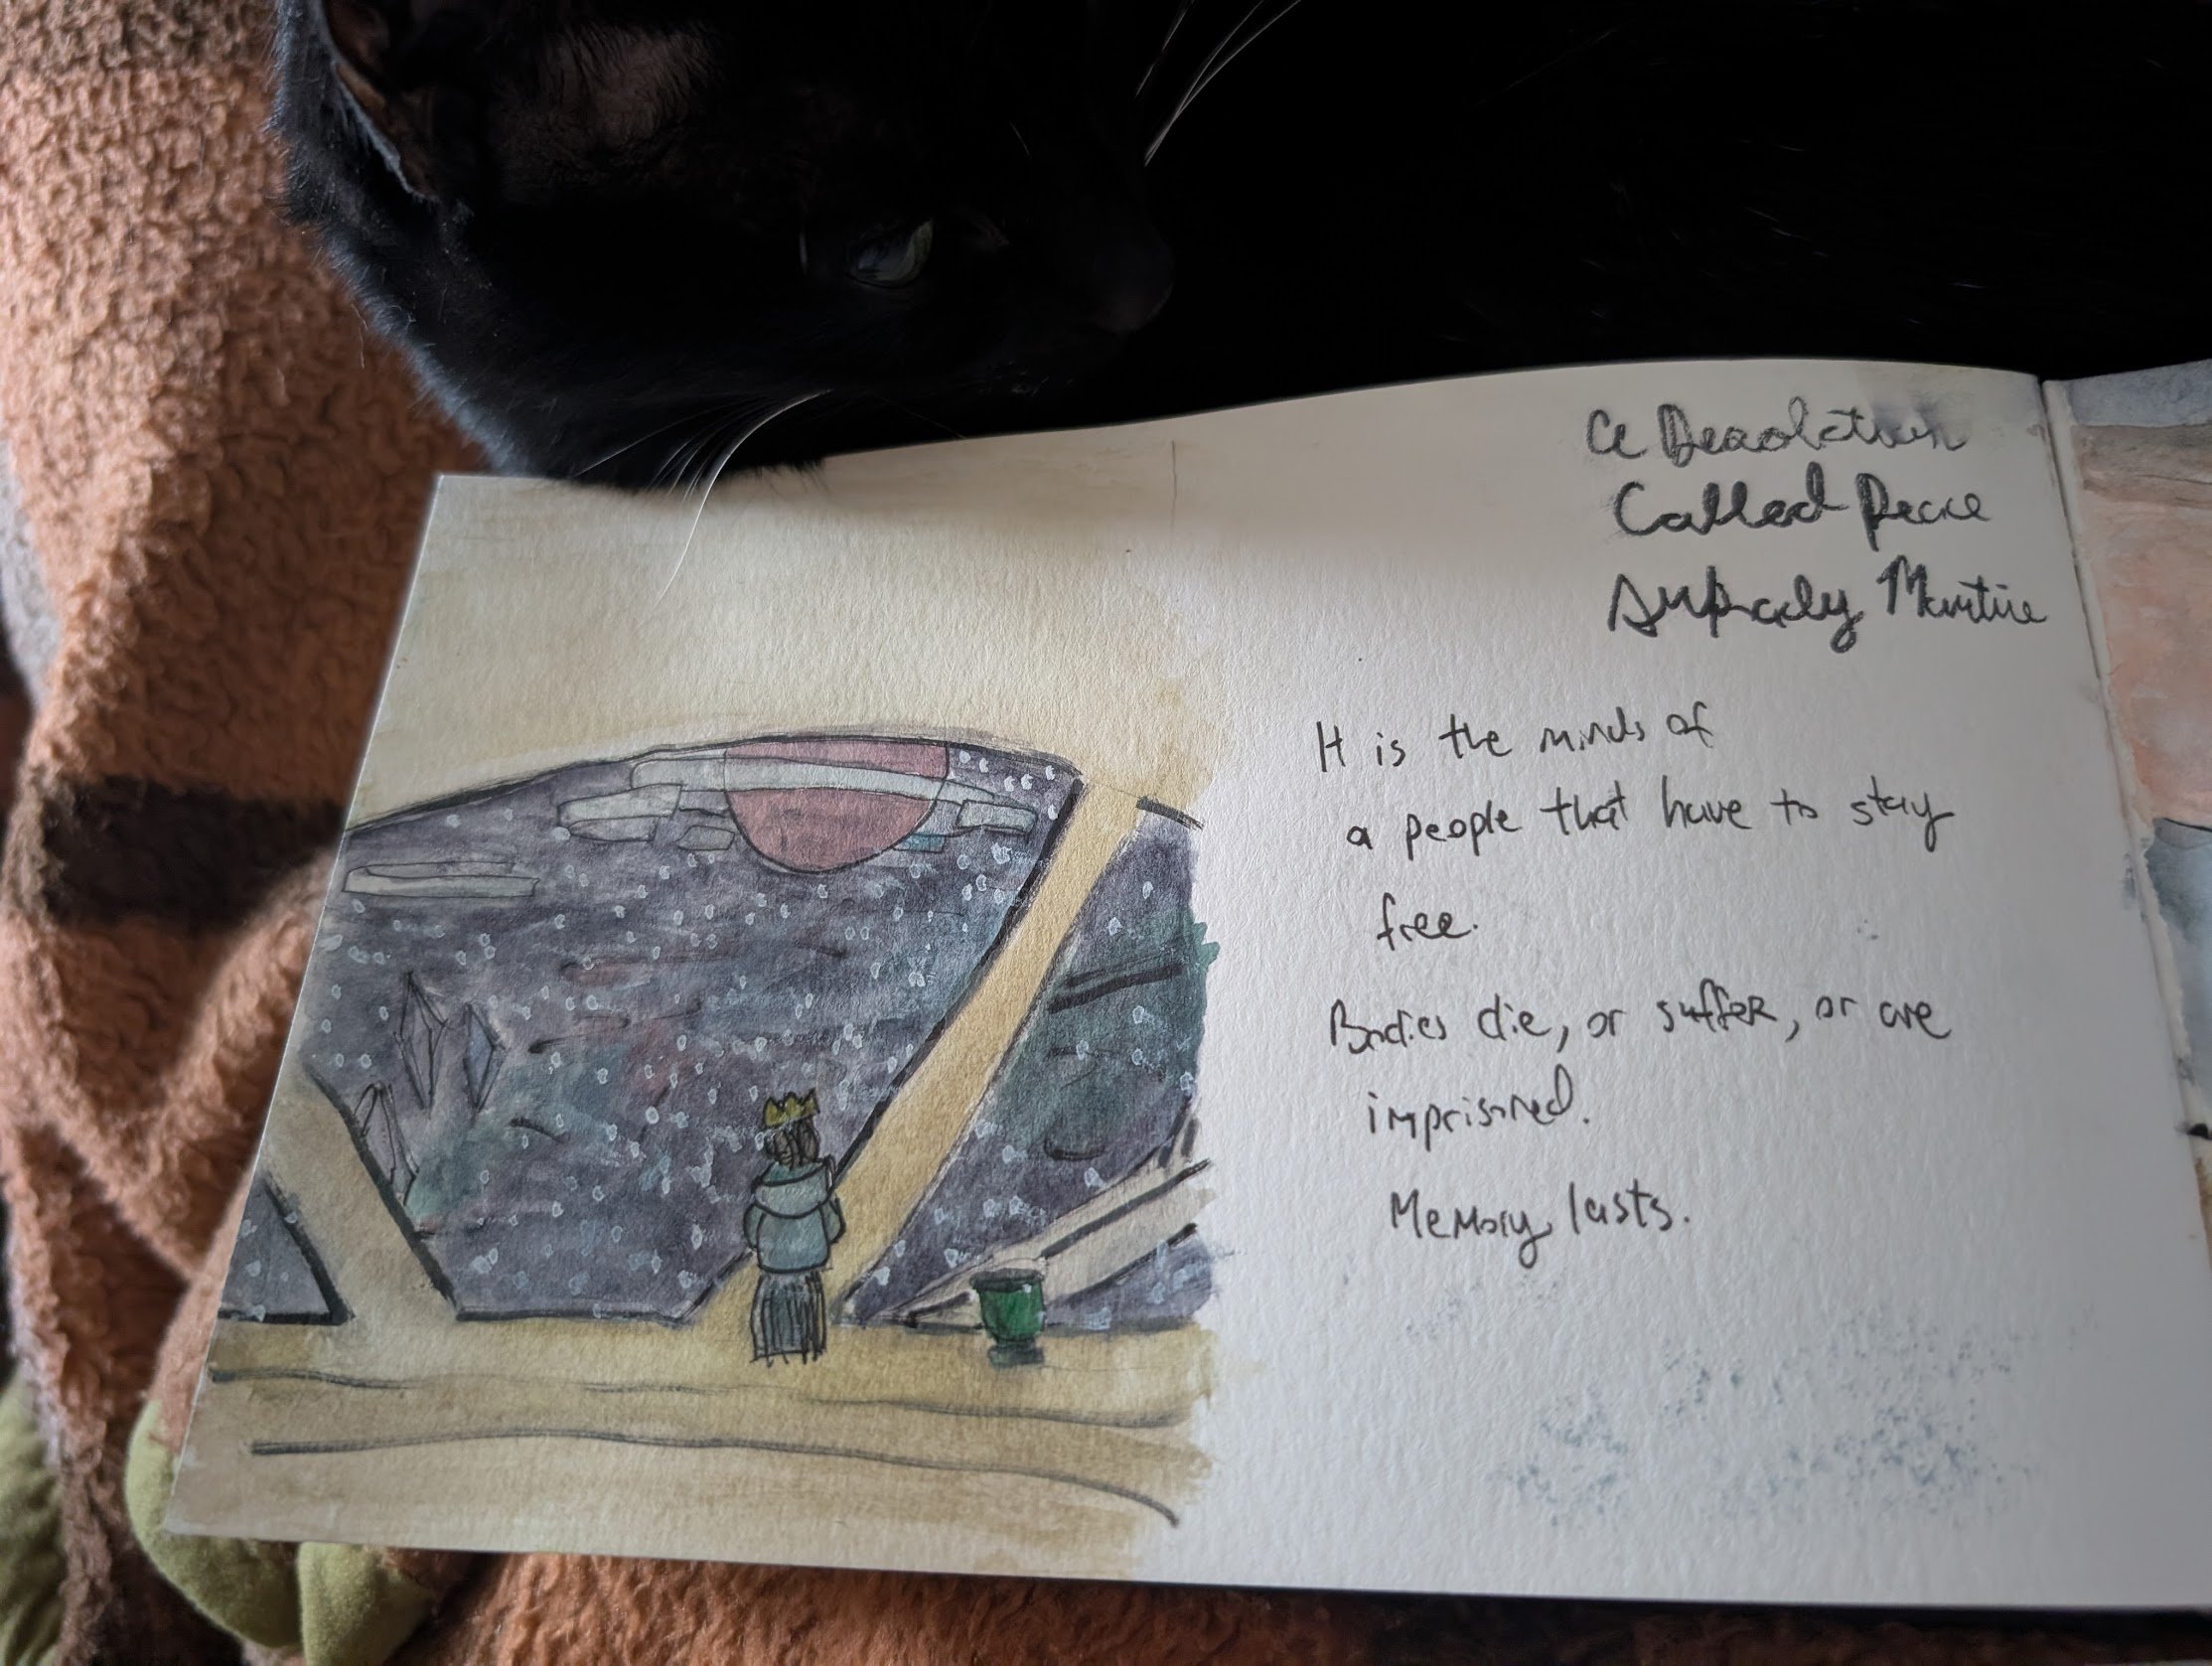 A Desolation
Called Peace
Arkady Martine
It is the minds of
a people that have to stay
free.
Bodies die, or suffer, or are
imprisoned.
Memory lasts.